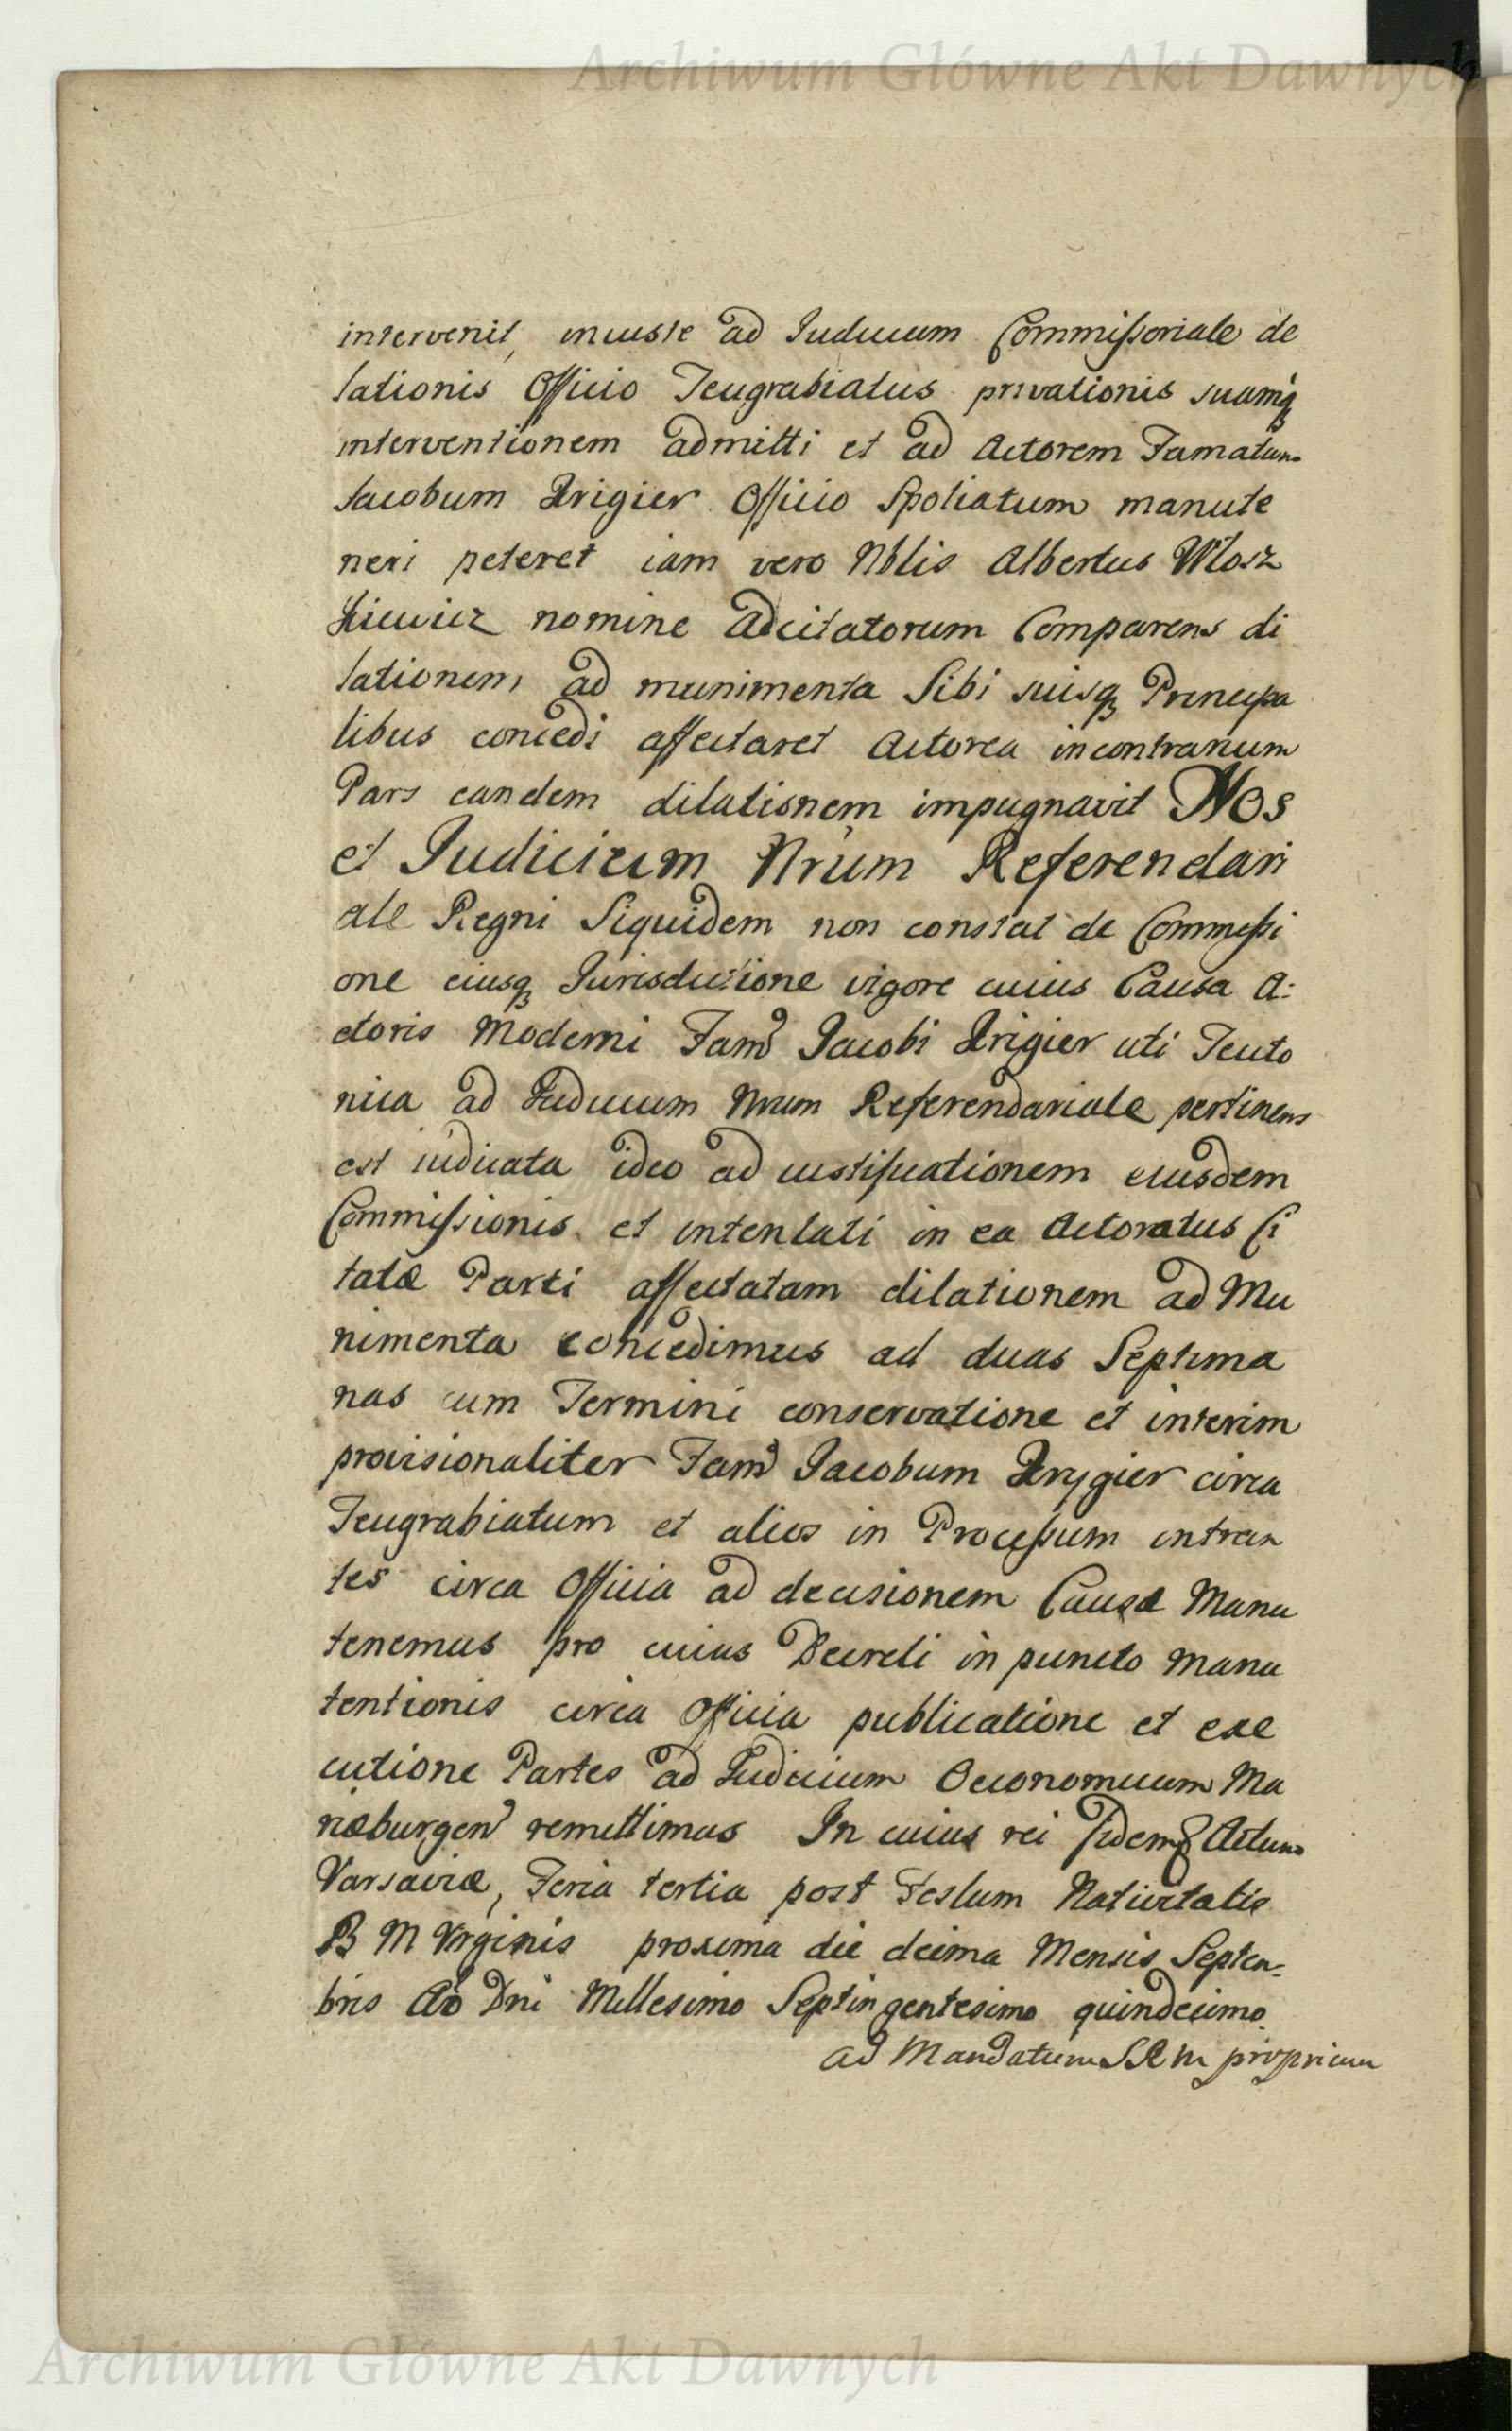 Archiwum Główne Akt Dawnych
intervenit, iniuste ad Iudicium Commissoriale de
lationis Officio Teugrabiatus privationis suamq
interventionem admitti et ad Actorem Famatum
Iacobum Krigier Officio Spoliatum manute
neri peteret iam vero Nblis Albertus Włosz
kiewicz nomine Adcitatorum Comparens di
lationem ad munimenta Sibi suisq Principa
libus concedi affectaret Actorea incontrarium
Pars eandem dilationem impugnavit Nos
et Judicium Nrum Referendari
ale Regni Siquidem non constat de Commissi
one eiusq Jurisdictione vigore cuius Causa A:
ctoris Moderni Fam Jacobi Krigier uti Teuto
nica ad Iudicium Nrum Referendariale pertinens
est iudicata ideo ad iustificationem eiusdem
Commissionis et intentati in ea Actoratus Ci
tatæ Parti affectatam dilationem ad Mu
nimenta concedimus ad duas Septima
nas cum Termini conservatione et interim
provisionaliter Fam Jacobum Krygier circa
Teugrabiatum et alios in Processum intran
tes circa Officia ad decisionem Causæ Manu
tenemus pro cuius Decreti in puncto manu
tentionis circa Officia publicatione et exe
cutione Partes ad Iudicium Oeconomicum Ma
riæburgen remittimus In cuius rei fidem Actum
Varsaviæ, Feria tertia post Festum Nativitatis
B M Virginis proxima die decima Mensis Septem=
bris Ao Dni Millesimo Septingentesimo quindecimo
ad Mandatum S R M proprium
Archiwum Główne Akt Dawnych